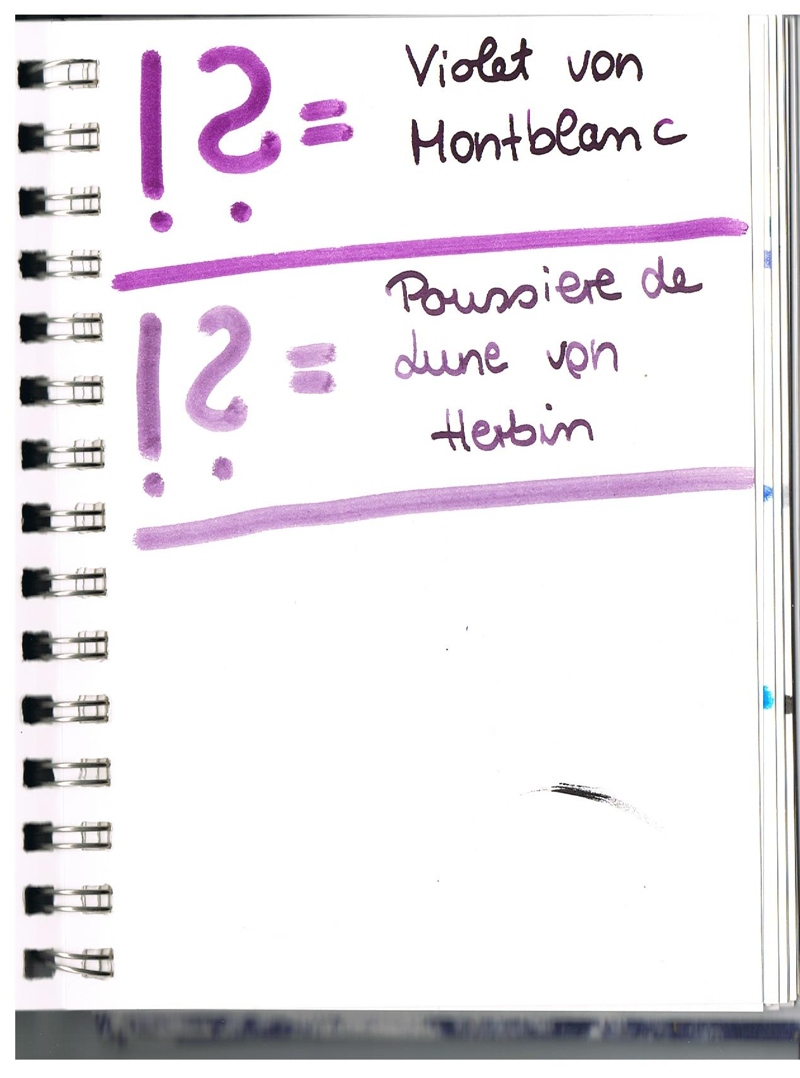 !? = Violet von
Montblanc
!? = Poussiere de
Lune von
Herbin